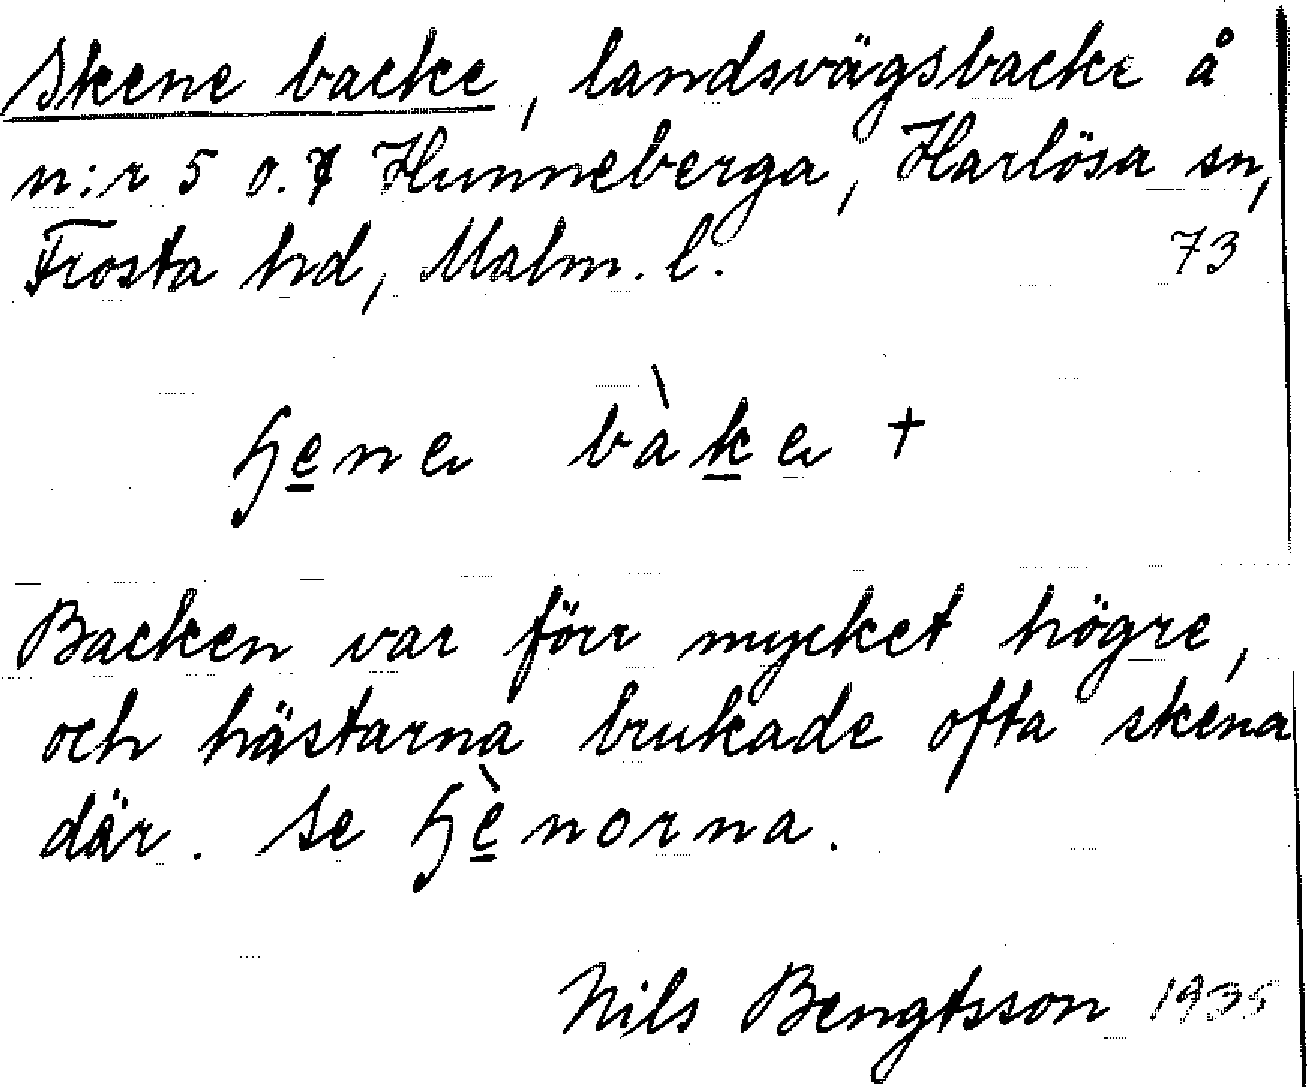 Skene backe, landsvägsbacke å
n:r 5 o. 7 Hunneberga, Harlösa sn,
Frosta hd, Malm. l. 73
ɧe̲nə bàk̲ə +
Backen var förr mycket högre,
och hästarna brukade ofta skena
där. Se ɧè̲norna.
Nils Bengtsson 1935